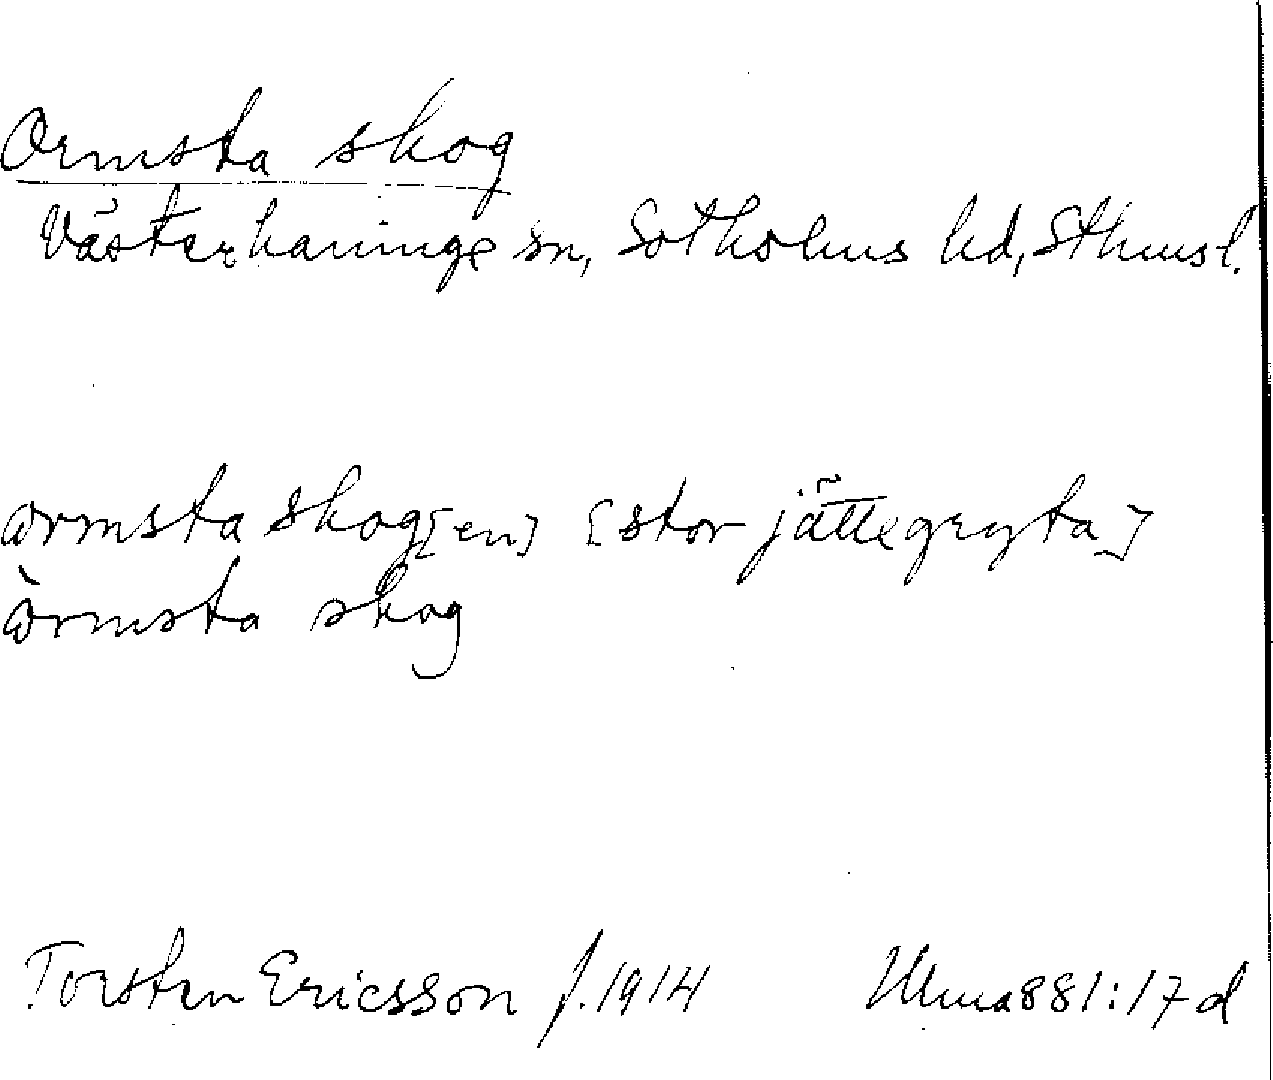 Ormsta skog
Västerhaninge sn, Sotholms hd, Sthms l.
ormsta skog[en] [stor jättegryta]
òrmsta skog
Torsten Ericsson f. 1914 Ulma 881:17 d